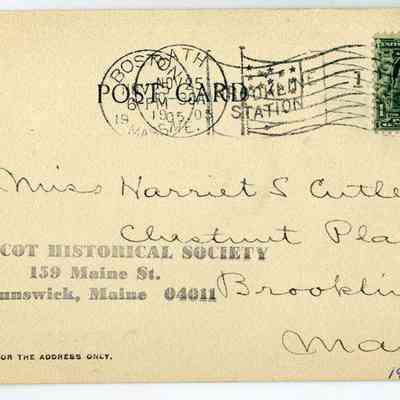 BOSTON
BATH
NOV 25
6 PM
19 05
MASS.
ME.
POST CARD
STATION
1
Miss Harriet S Cutle
Chestnut Pla
COT HISTORICAL SOCIETY
159 Maine St.
unswick, Maine 04011
Brooklin
Ma
OR THE ADDRESS ONLY.
19